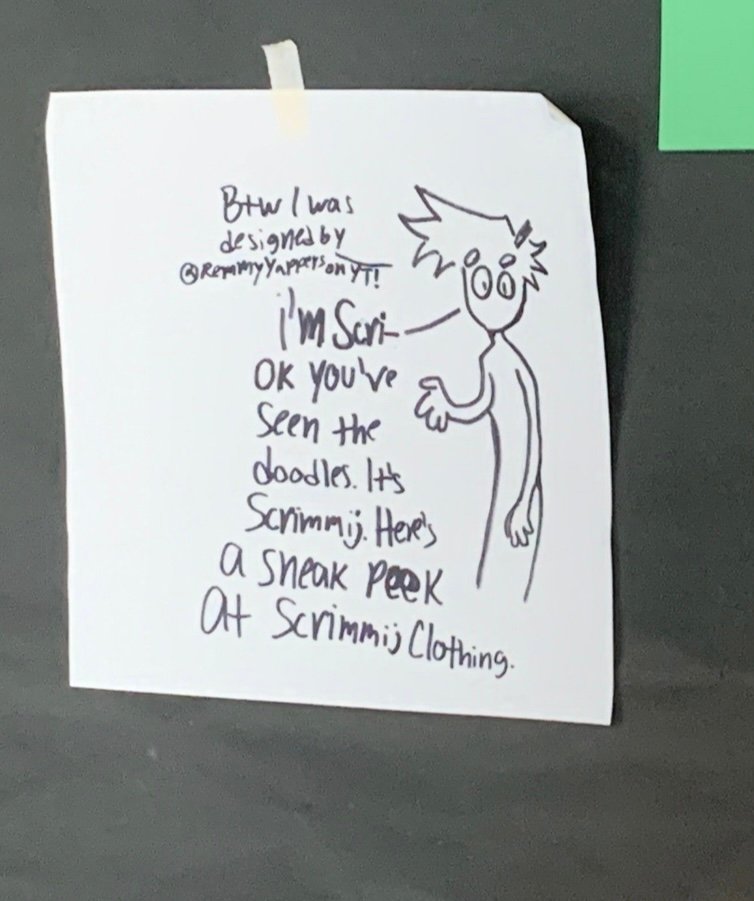 Btw I was
designed by
@RemmyYappers on YT!
i'm Scri-
OK you've
seen the
doodles. It's
Scrimmij. Here's
a sneak peek
at Scrimmij Clothing.